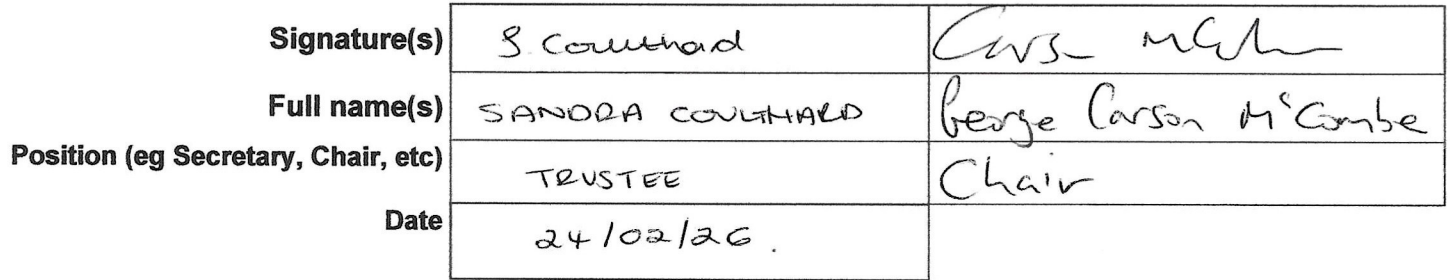 Signature(s) S. Coulthard
Full name(s) SANDRA COULTHARD George Carson McCombe
Position (eg Secretary, Chair, etc) TRUSTEE Chair
Date 24/02/26.